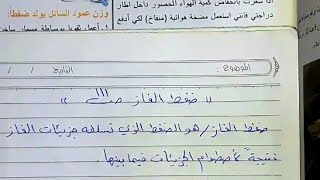 اذا شعرت بانخفاض كمية الهواء المحصور داخل اطار
دراجتي فانني استعمل مضخة هوائية (منفاخ) لكي أدفع
وزن عمود السائل يولد ضغطا:
الموضوع:
التاريخ: / /
« ضغط الغاز ص١١١ »
ضغط الغاز / هو الضغط الذي تسلطه جزيئات الغاز
نتيجة اصطدام الجزيئات فيما بينها.